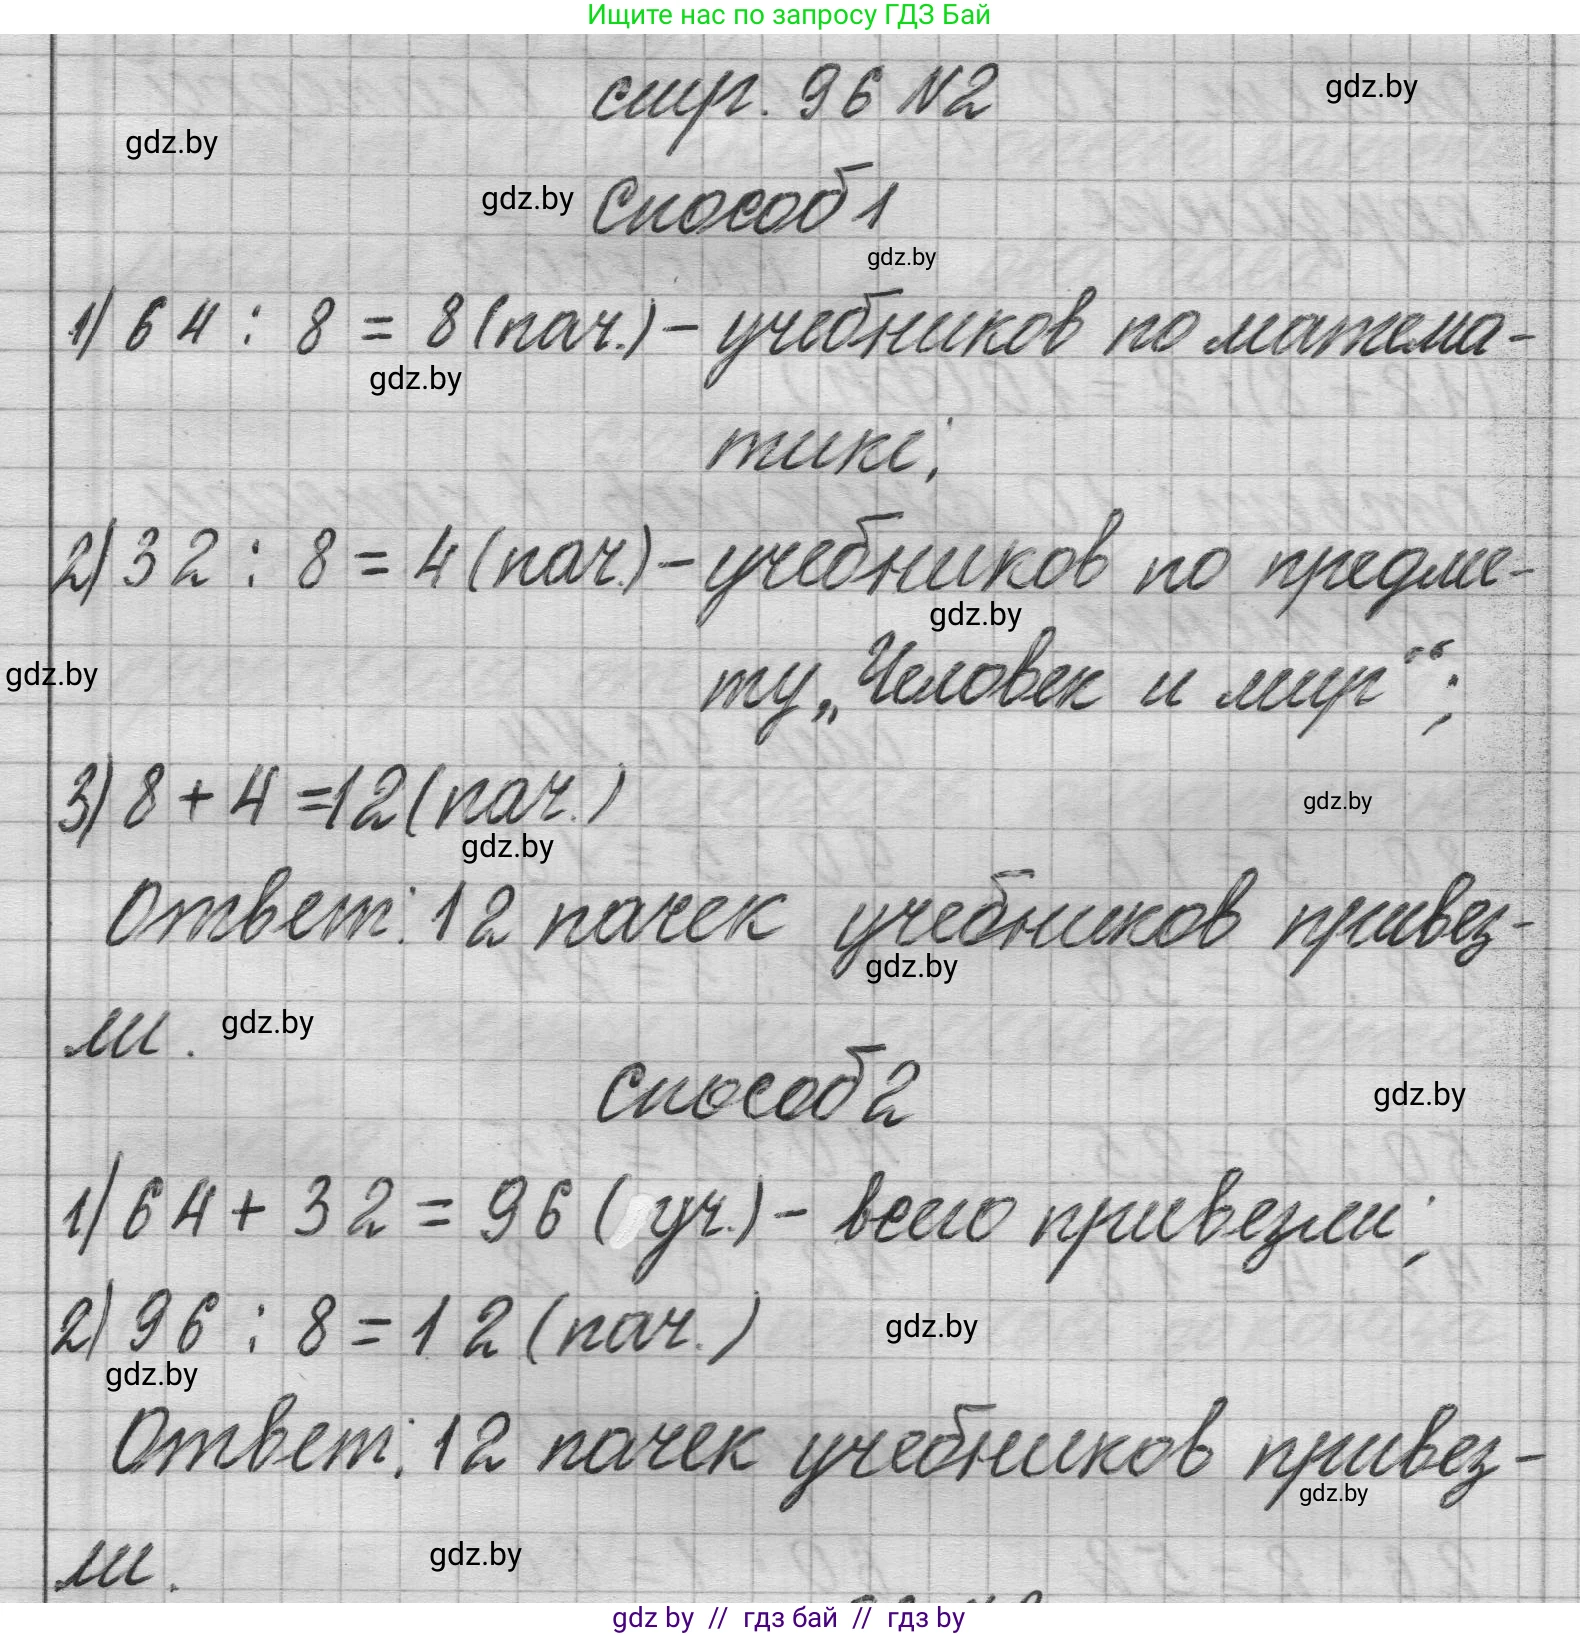 Ищите нас по запросу ГДЗ Бай
стр. 96 №2
gdz.by
gdz.by
gdz.by
Способ 1
gdz.by
1) 64 : 8 = 8 (пач.) – учебников по матема-
gdz.by
тике;
2) 32 : 8 = 4 (пач.) – учебников по предме-
gdz.by
ту „Человек и мир“;
gdz.by
3) 8 + 4 = 12 (пач.)
gdz.by
gdz.by
Ответ: 12 пачек учебников привез-
gdz.by
ли.
gdz.by
Способ 2
gdz.by
1) 64 + 32 = 96 (уч.) – всего привезли;
2) 96 : 8 = 12 (пач.)
gdz.by
gdz.by
Ответ: 12 пачек учебников привез-
gdz.by
ли.
gdz.by
gdz by // гдз бай // гдз by